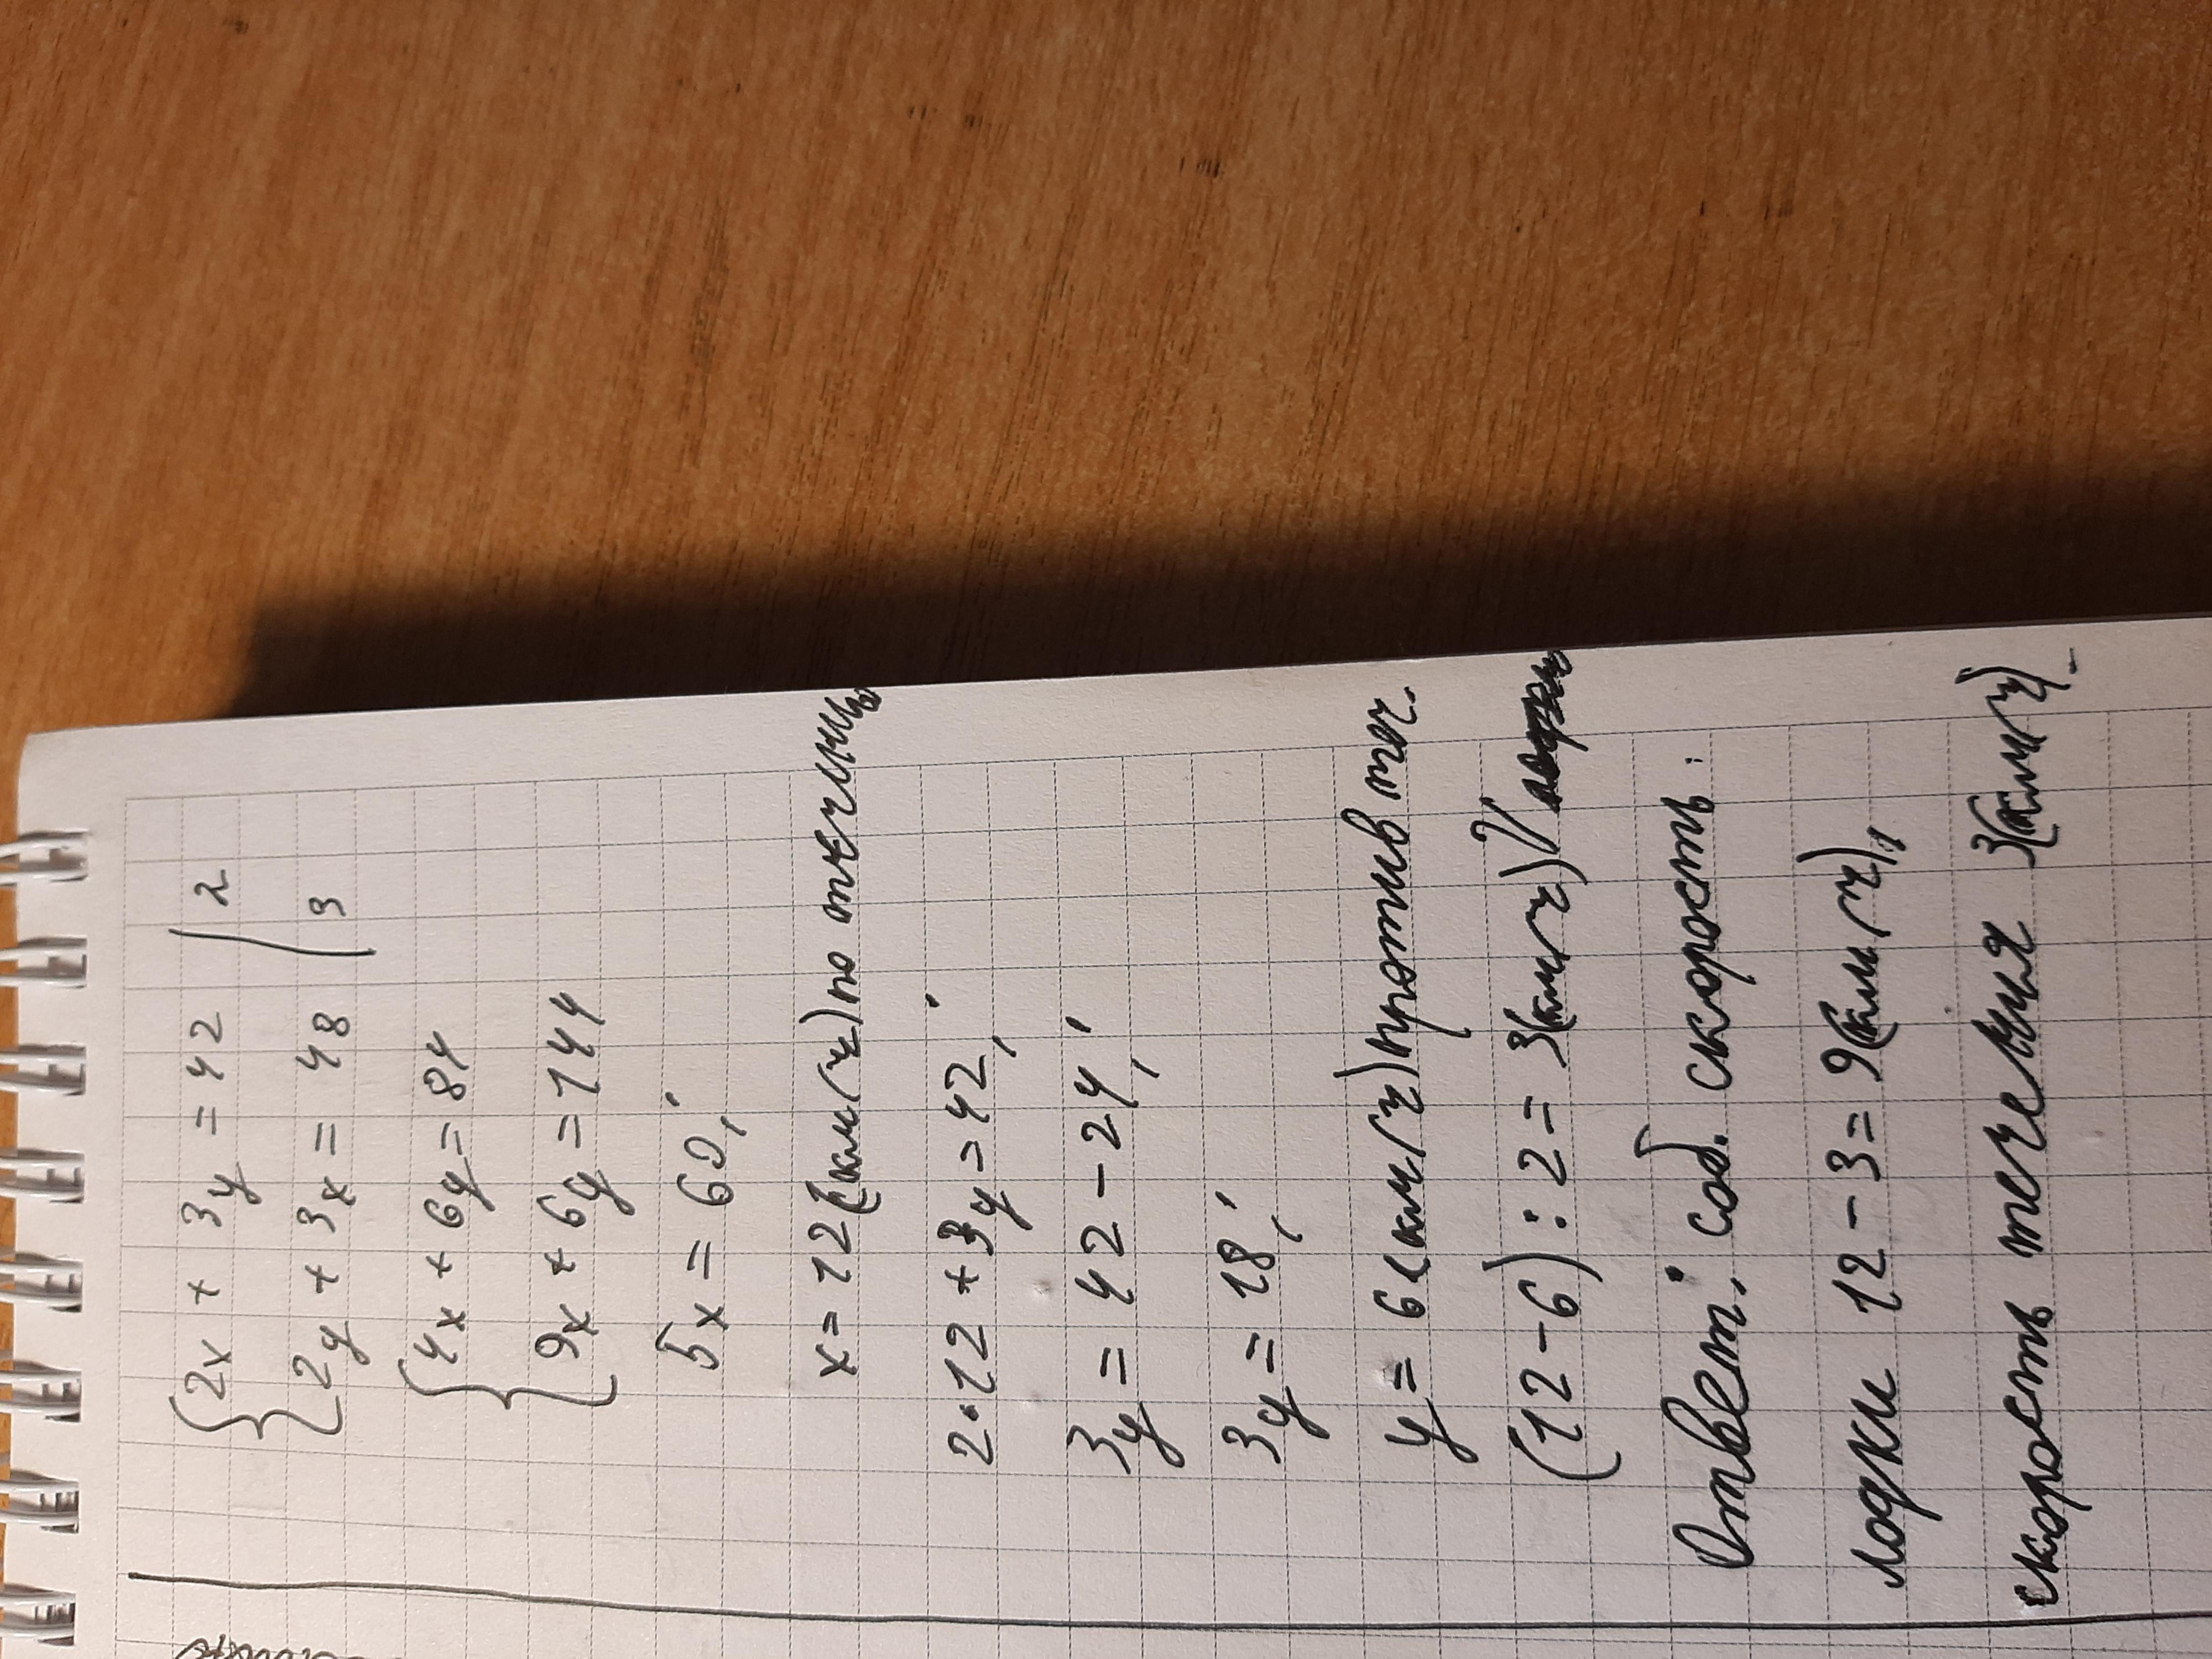 {2x + 3y = 42 | 2
{2y + 3x = 48 | 3
{4x + 6y = 84
{9x + 6y = 144
5x = 60;
x = 12 (км/ч) по течению
2·12 + 3y = 42;
3y = 42 - 24;
3y = 18;
y = 6 (км/ч) против теч.
(12-6) : 2 = 3 (км/ч) V
Ответ: соб. скорость:
лодки 12 - 3 = 9 (км/ч),
скорость течения 3 (км/ч).